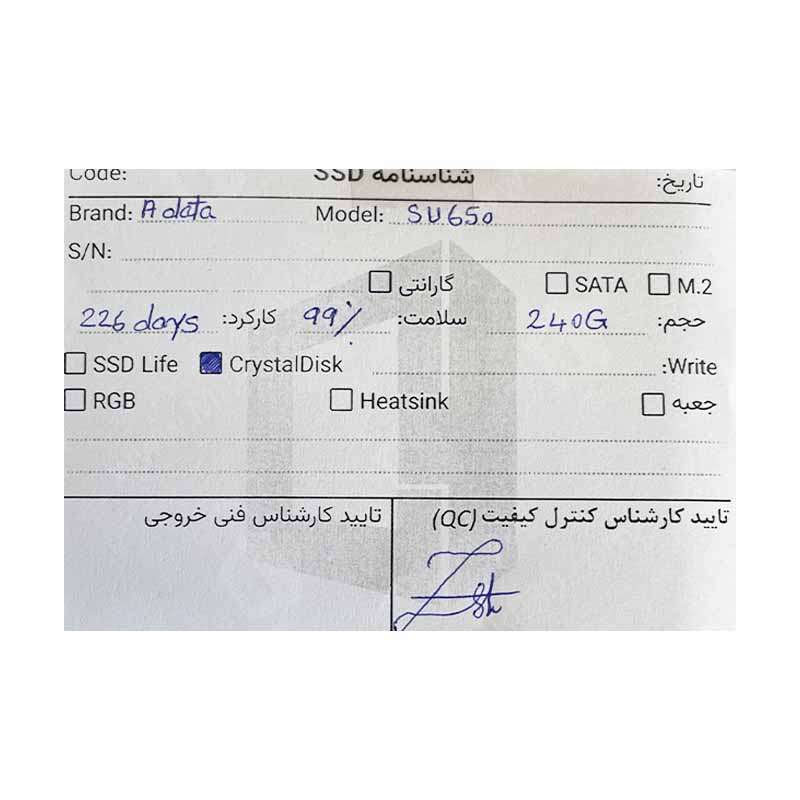 Code: شناسنامه SSD تاریخ:
Brand: Adata Model: SU650
S/N:
گارانتی SATA M.2
حجم: 240G سلامت: 99% کارکرد: 226 days
SSD Life CrystalDisk Write:
RGB Heatsink جعبه
تایید کارشناس کنترل کیفیت (QC) تایید کارشناس فنی خروجی